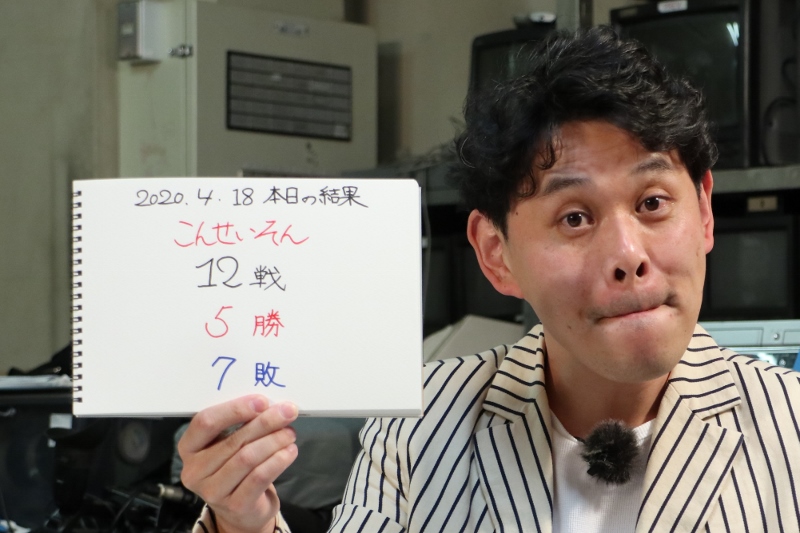 2020.4.18 本日の結果
こんせいそん
12戦
5勝
7敗